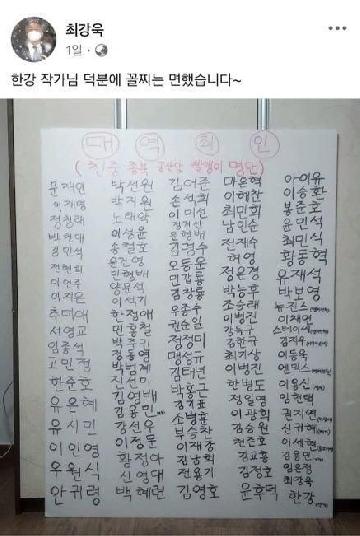 최강욱
1일
한강 작가님 덕분에 꼴찌는 면했습니다~
대 역 죄 인
(친중 종북 공산당 빨갱이 명단)
문재인
이재명
정청래
김민석
전현희
이언주
이지은
추미애
서영교
임종석
고민정
한준호
유은혜
유시민
이인영
우원식
안귀령
박선원
박지원
노태악
이성윤
송철호
윤건영
민형배
양문석
이석기
한정애
민홍철
박주민
정동영
박범계
진선미
김영배
김용민
강선우
이정문
황정아
신영대
백혜련
김어준
손석희
이미선
정계선
문형배
김경수
오동운
민갑룡
김창룡
우종수
권순일
정정미
맹성규
김태년
박홍근
김기표
소병훈
부승찬
이재강
김남희
전용기
김영호
마은혁
이해찬
최민희
남인순
허영
정은경
박능후
조승래
이병진
강득구
김한규
최기상
한병도
정일영
이광희
김승원
천준호
김교흥
김정호
윤후덕
아이유
이승환
봉준호
최민식
황동혁
유재석
박보영
뉴진스
스테이씨
김지우
이동욱
엔믹스
이용신
임현택
권지연
이세현
임은정
최강욱
한강